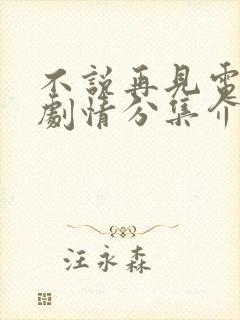 不說再見電
劇情分集介
汪永森